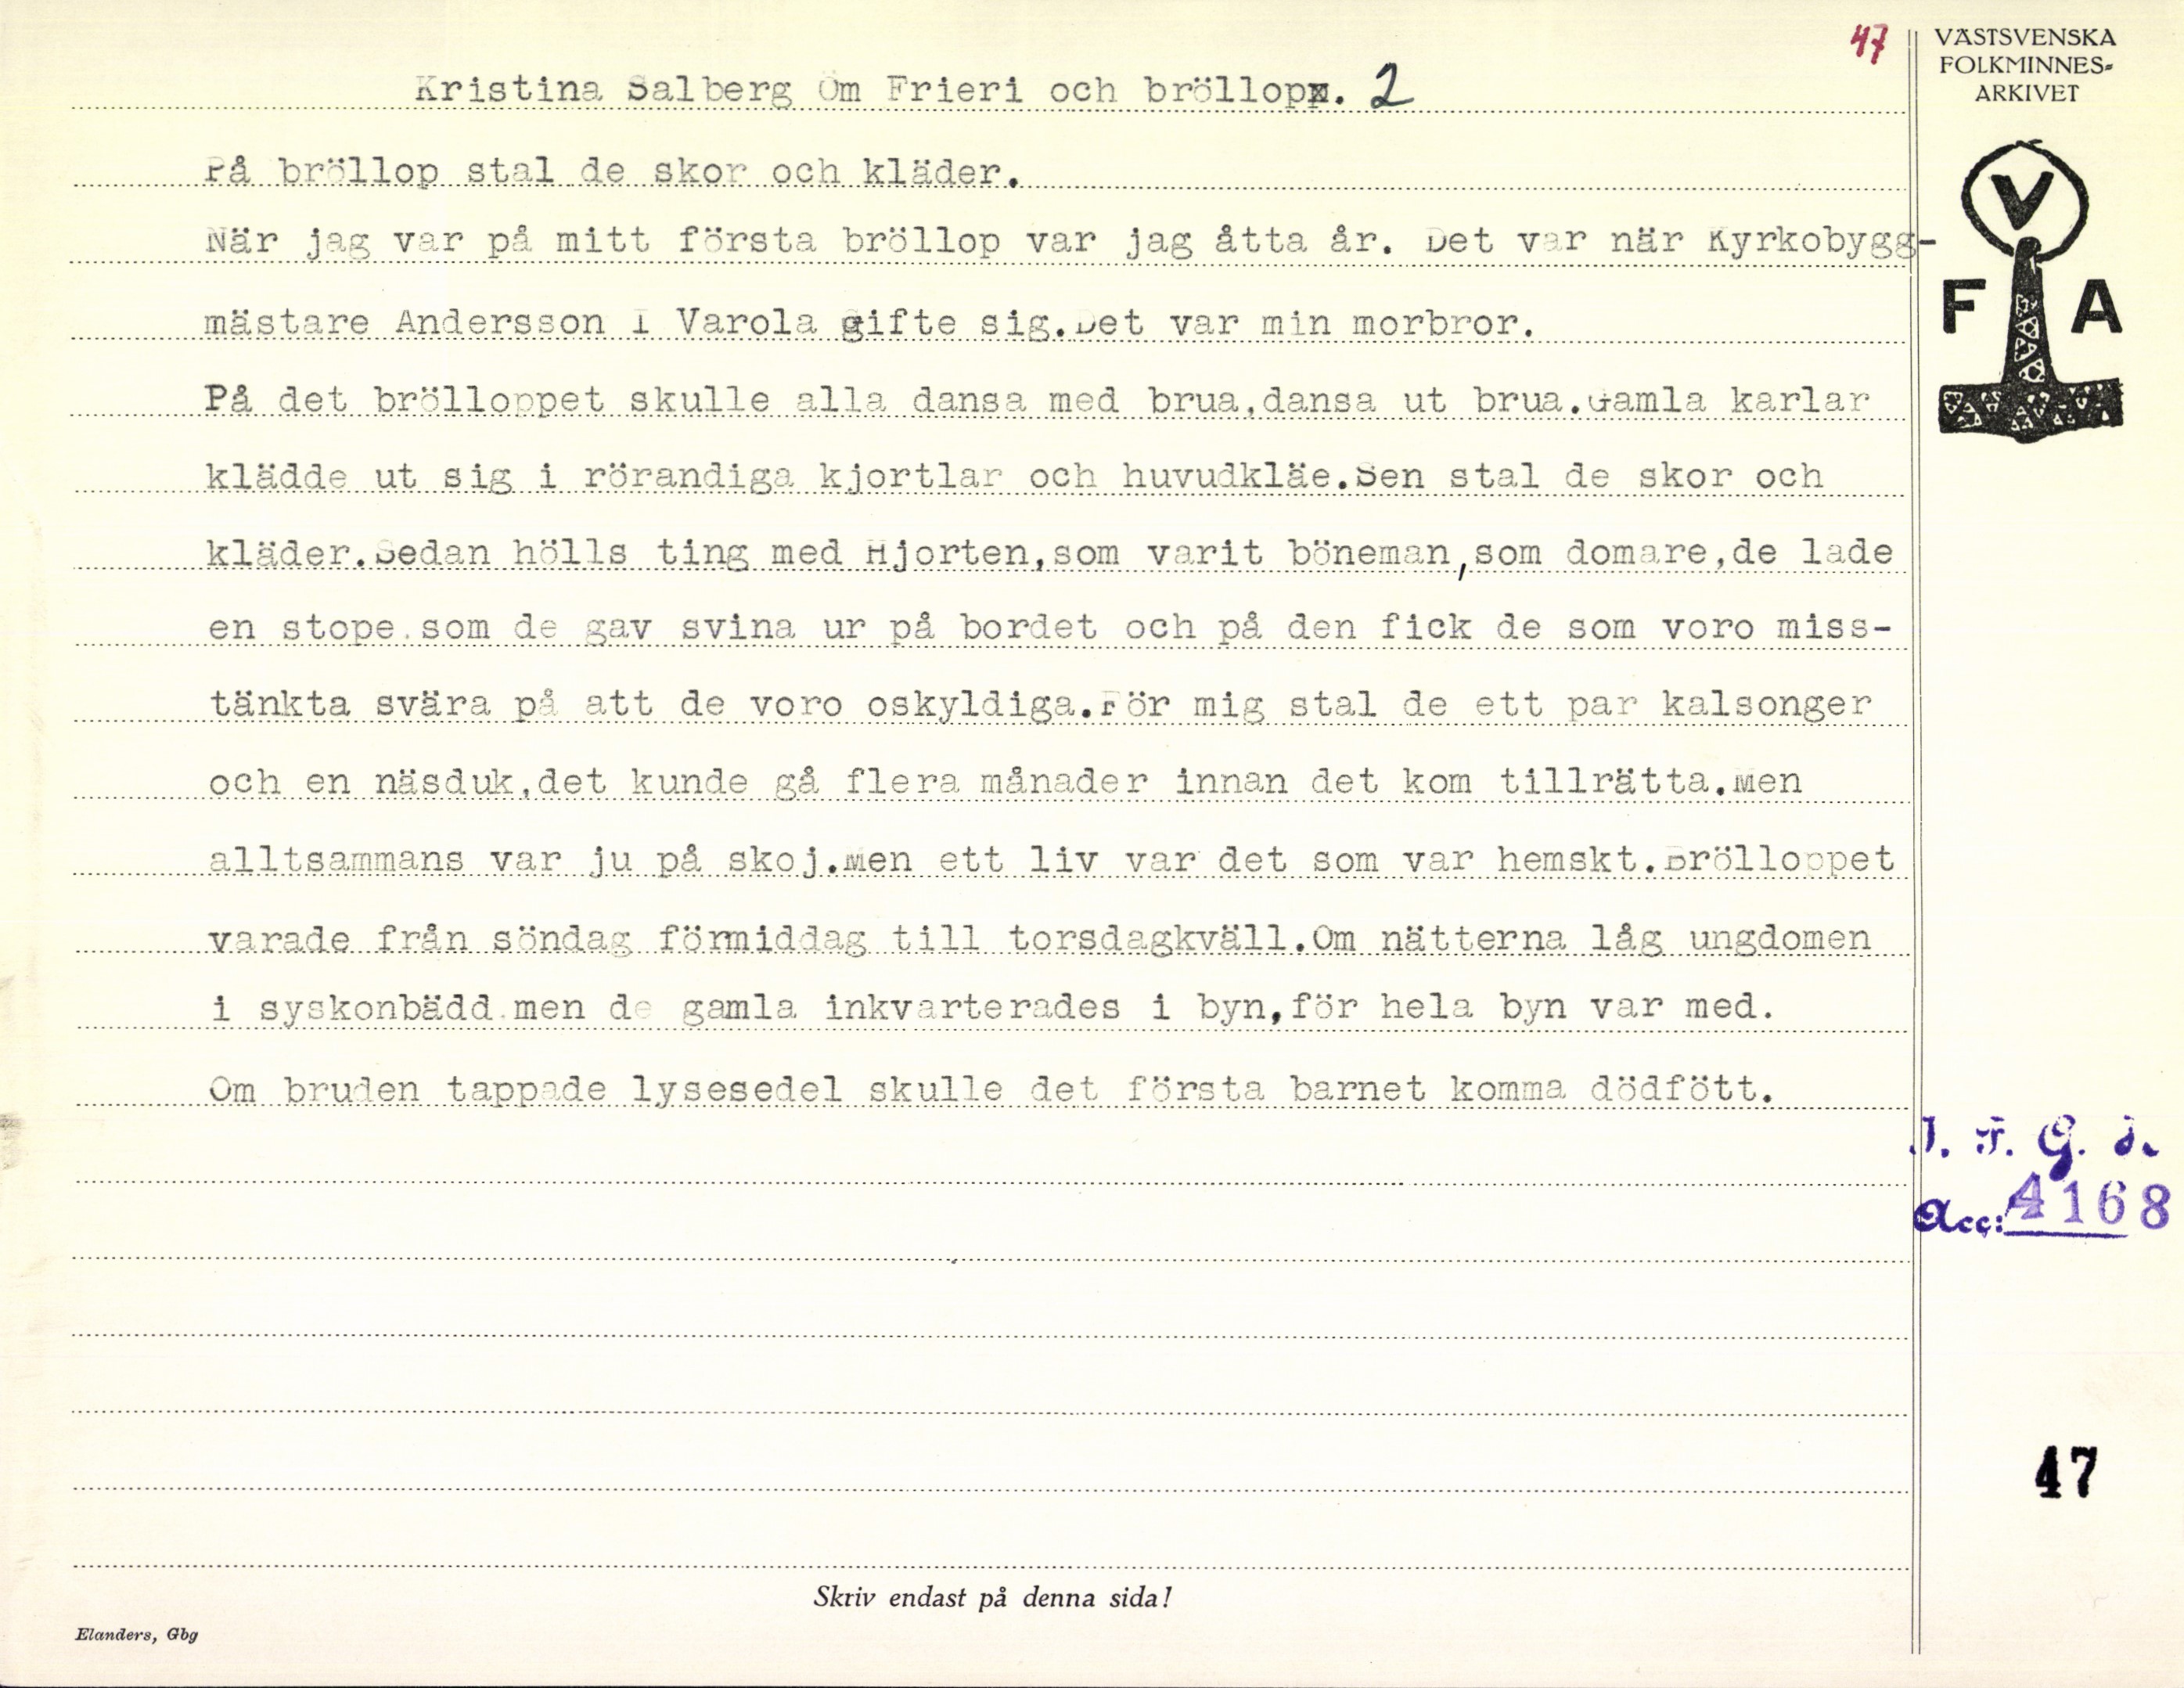 47
VÄSTSVENSKA
FOLKMINNES-
ARKIVET
V
F A
Kristina Salberg Om Frieri och bröllop. 2
På bröllop stal de skor och kläder.
När jag var på mitt första bröllop var jag åtta år. Det var när Kyrkobygg-
mästare Andersson I Varola gifte sig.Det var min morbror.
På det brölloppet skulle alla dansa med brua,dansa ut brua.Gamla karlar
klädde ut sig i rörandiga kjortlar och huvudkläe.Sen stal de skor och
kläder.Sedan hölls ting med Hjorten,som varit böneman,som domare,de lade
en stope.som de gav svina ur på bordet och på den fick de som voro miss-
tänkta svära på att de voro oskyldiga.För mig stal de ett par kalsonger
och en näsduk,det kunde gå flera månader innan det kom tillrätta.Men
alltsammans var ju på skoj.Men ett liv var det som var hemskt.Brölloppet
varade från söndag förmiddag till torsdagkväll.Om nätterna låg ungdomen
i syskonbädd.men de gamla inkvarterades i byn,för hela byn var med.
Om bruden tappade lysesedel skulle det första barnet komma dödfött.
I. F. G. H.
Acc: 4168
47
Skriv endast på denna sida!
Elanders, Gbg